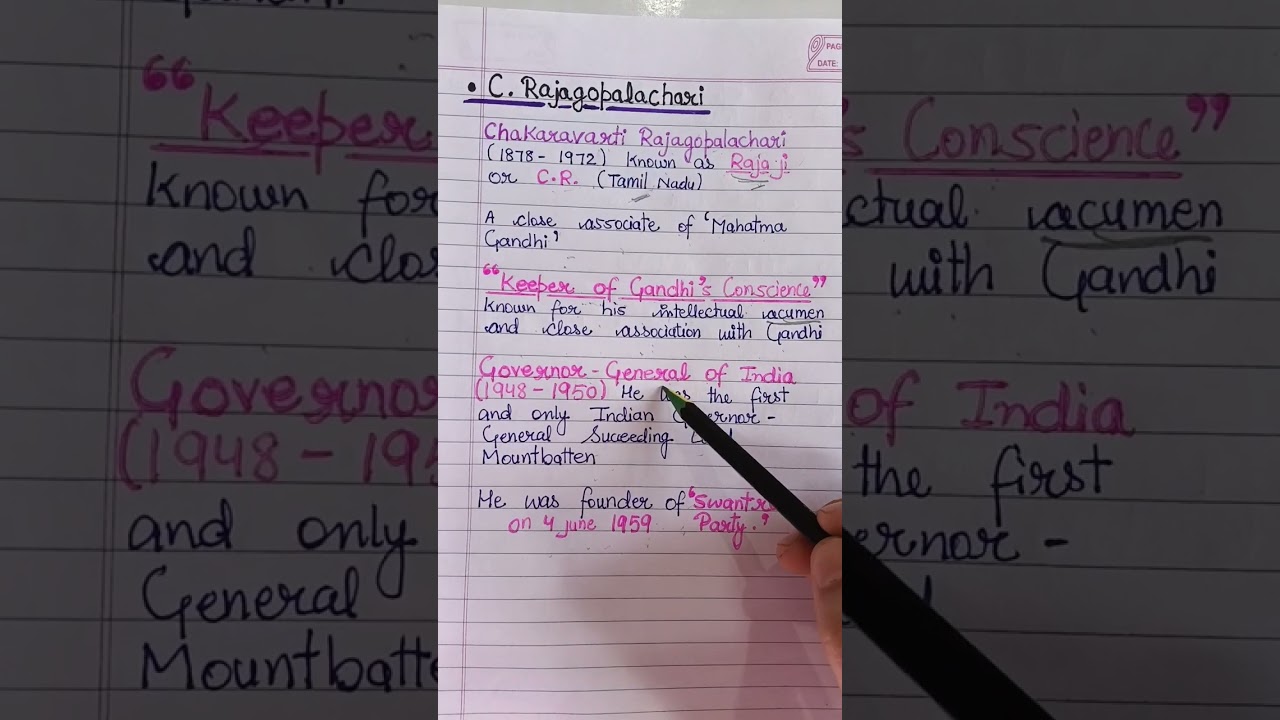 PAG
DATE:
• C. Rajagopalachari
Chakaravarti Rajagopalachari
(1878 - 1972) known as Rajaji
or C.R. (Tamil Nadu)
A close associate of 'Mahatma
Gandhi'
"Keeper of Gandhi's Conscience"
known for his intellectual acumen
and close association with Gandhi
Governor - General of India
(1948 - 1950) He was the first
and only Indian Governor -
General Suceeding
Mountbatten
He was founder of "Swant
on 4 june 1959 Party."